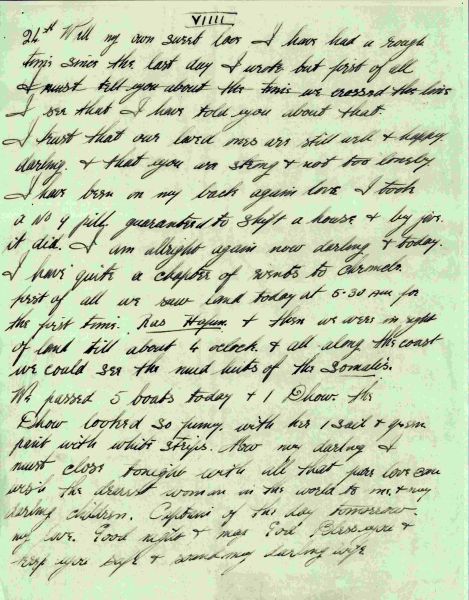 VIIII
24th Well my own sweet love I have had a rough
time since the last day I wrote but first of all
I must tell you about the time we crossed the line
I see that I have told you about that.
I trust that our loved ones are still well & happy
darling & that you are strong & not too lonely
I have been on my back again love I took
a No 9 pill guaranteed to shift a house & by jove
it did. I am allright again now darling & today.
I have quite a chapter of events to chronicle.
first of all we saw land today at 5-30 AM for
the first time. Ras Hafun. & then we were in sight
of land till about 4 oclock & all along the coast
we could see the mud huts of the Somalis.
We passed 5 boats today & 1 Dhow. the
Dhow looked so funny with her 1 sail & green
paint with white stripes. Now my darling I
must close tonight with all that pure love can
wish the dearest woman in the world to me. & my
darling children. Captain of the day tomorrow.
my love. Good night & may God Bless you &
keep you safe & sound my darling wife